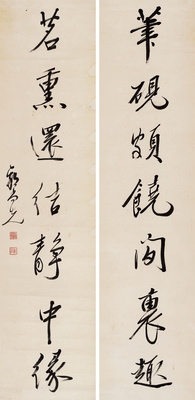 筆硯頗饒閒裏趣
茗熏還結靜中緣
郭尚先